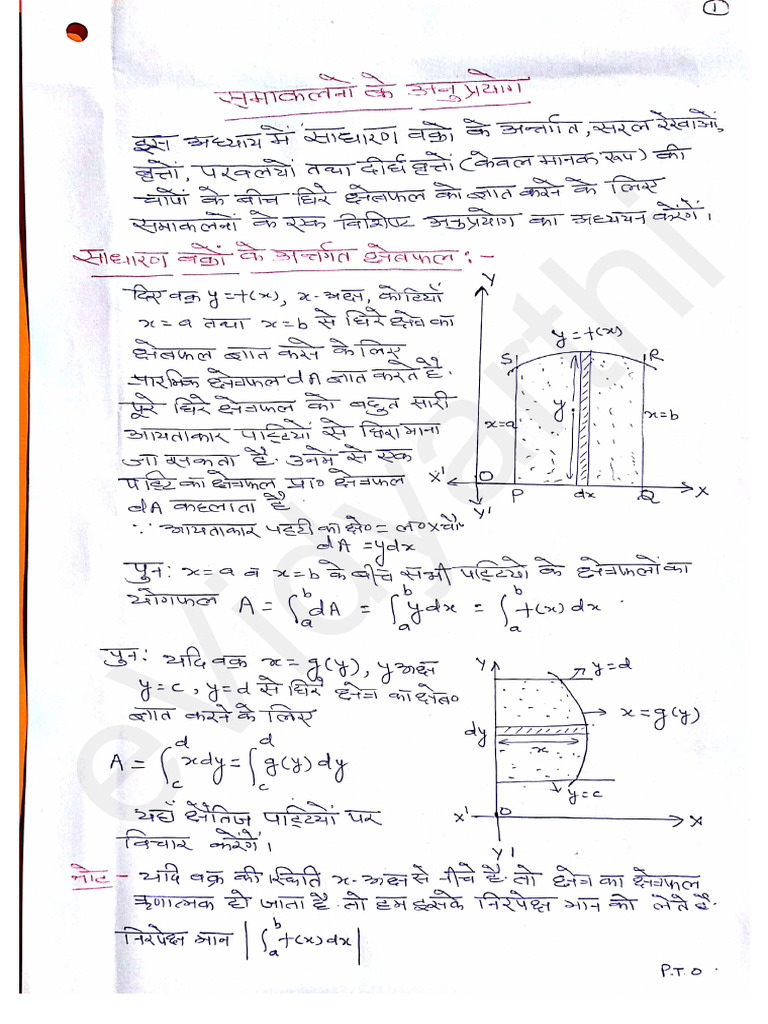 1
समाकलनों के अनुप्रयोग
इस अध्याय में साधारण वक्रों के अन्तर्गत, सरल रेखाओं,
वृत्तों, परवलयों तथा दीर्घवृत्तों (केवल मानक रूप) की
चापों के बीच घिरे क्षेत्रफल को ज्ञात करने के लिए
समाकलनों के एक विशिष्ट अनुप्रयोग का अध्ययन करेंगें।
साधारण वक्रों के अन्तर्गत क्षेत्रफल :-
दिए वक्र y=f(x), x-अक्ष, कोटियों
x=a तथा x=b से घिरे क्षेत्र का
क्षेत्रफल ज्ञात करने के लिए
प्रारम्भिक क्षेत्रफल dA ज्ञात करते है.
पूरे घिरे क्षेत्रफल को बहुत सारी
आयताकार पट्टियों से घिरा माना
जा सकता है. उनमें से एक
पट्टि का क्षेत्रफल प्रा० क्षेत्रफल
dA कहलाता है
∵ आयताकार पट्टी का क्षे० = ल० × चौ०
dA = ydx
Y
y=f(x)
S
R
x=a
y
x=b
X'
O
P
dx
Q
X
Y'
पुनः x=a व x=b के बीच सभी पट्टियो के क्षेत्रफलों का
योगफल A = ∫_a^b dA = ∫_a^b ydx = ∫_a^b f(x) dx .
पुनः यदि वक्र x = g(y), y अक्ष
y=c, y=d से घिरे क्षेत्र का क्षेत्र०
ज्ञात करने के लिए
A = ∫_c^d xdy = ∫_c^d g(y) dy
यहाँ क्षैतिज पट्टियों पर
विचार करेंगें।
Y
y=d
x=g(y)
dy
x
y=c
X'
O
X
Y'
नोट - यदि वक्र की स्थिति x-अक्ष से नीचे है. तो क्षेत्र का क्षेत्रफल
ऋणात्मक हो जाता है. तो हम इसके निरपेक्ष मान को लेते है.
निरपेक्ष मान |∫_a^b f(x) dx|
P.T.O.
eVidyarthi